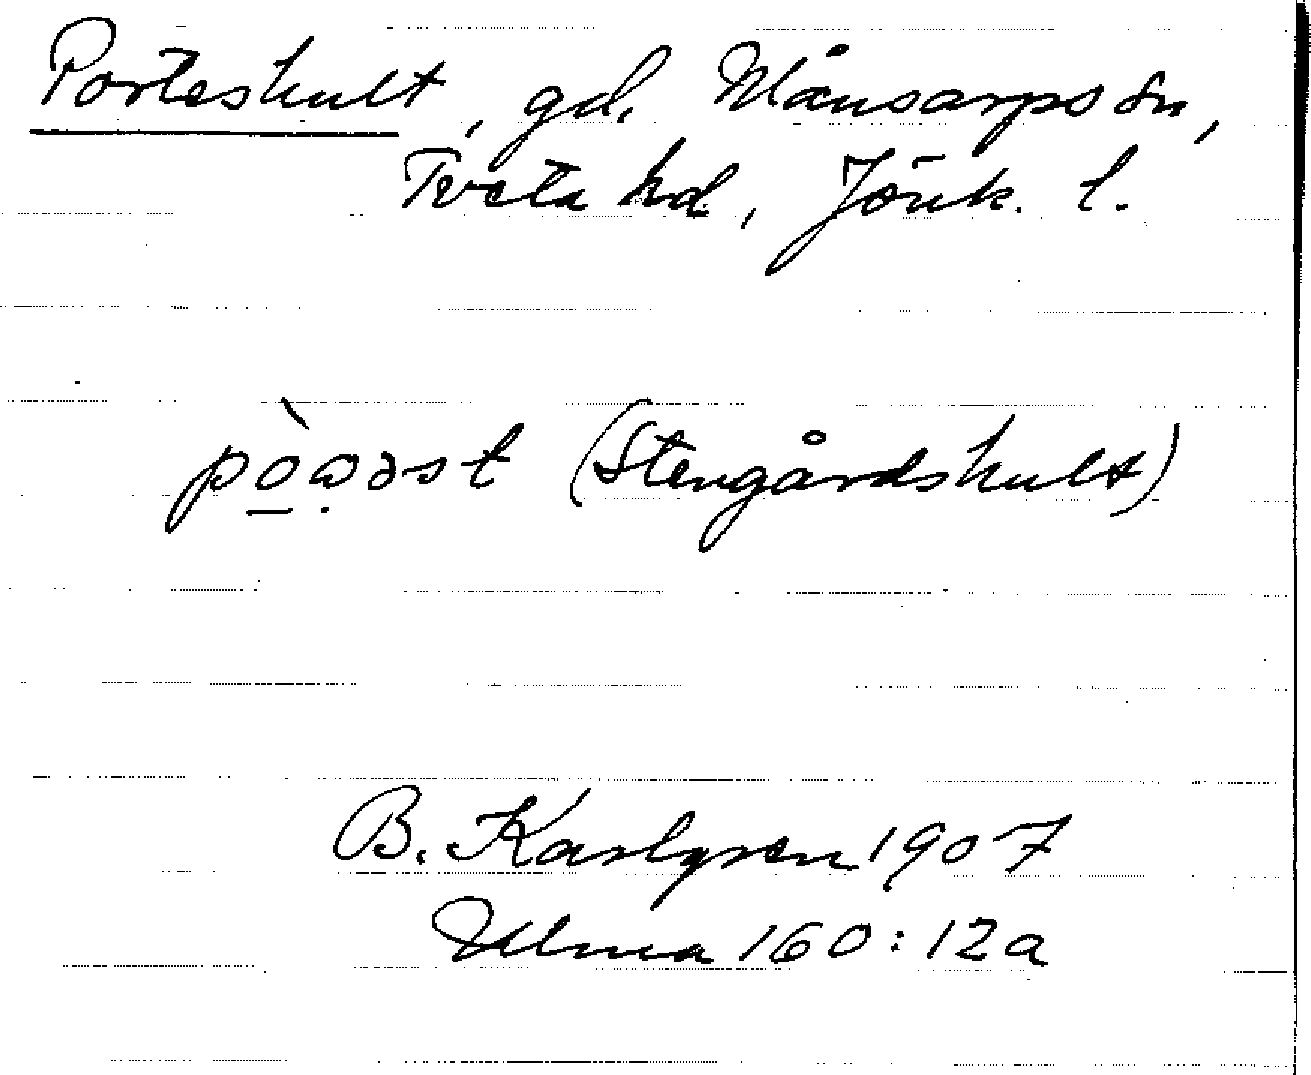 Porteshult, gd. Månsarps sn,
Tveta hd, Jönk. l.
pòɷəst (Stengårdshult)
B. Karlgren 1907
Ulma 160:12a